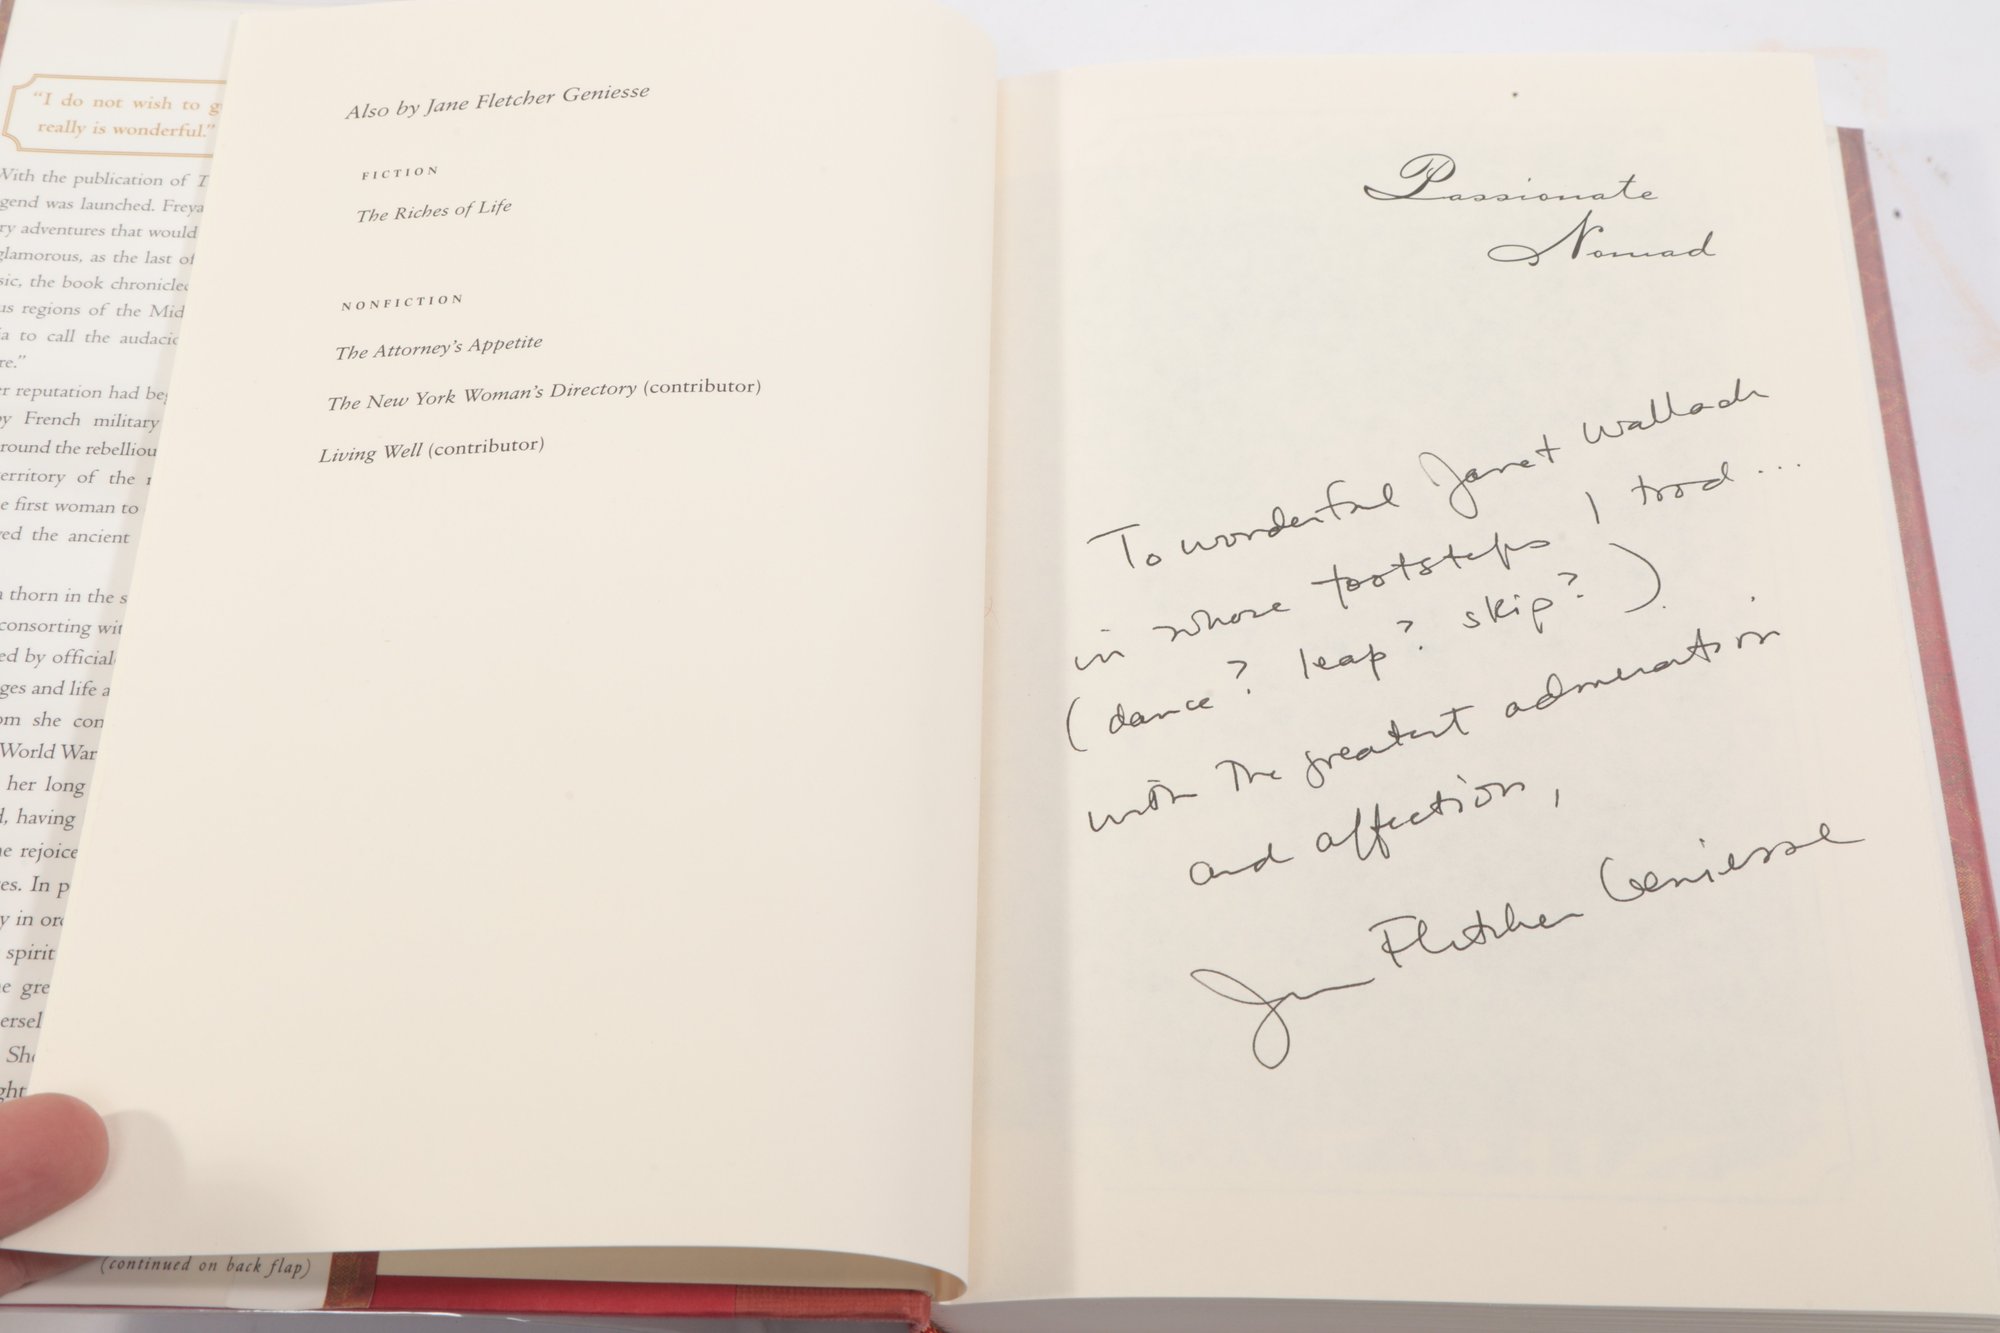 "I do not wish to
really is wonderful."
With the publication of
gend was launched. Freya
ry adventures that would
glamorous, as the last of
sic, the book chronicle
us regions of the Mid
ia to call the audaci
re."
er reputation had be
by French military
round the rebelliou
erritory of the
e first woman to
ed the ancient
thorn in the s
consorting wit
ed by official
ges and life a
om she con
World War
her long
d, having
he rejoice
es. In p
y in or
spirit
e gre
ersel
Sh
ght
(continued on back flap)
Also by Jane Fletcher Geniesse
FICTION
The Riches of Life
NONFICTION
The Attorney's Appetite
The New York Woman's Directory (contributor)
Living Well (contributor)
Passionate
Nomad
To wonderful Janet Wallach
in whose footsteps I trod ...
(dance? leap? skip?)
with the greatest admiration
and affection,
Jane Fletcher Geniesse